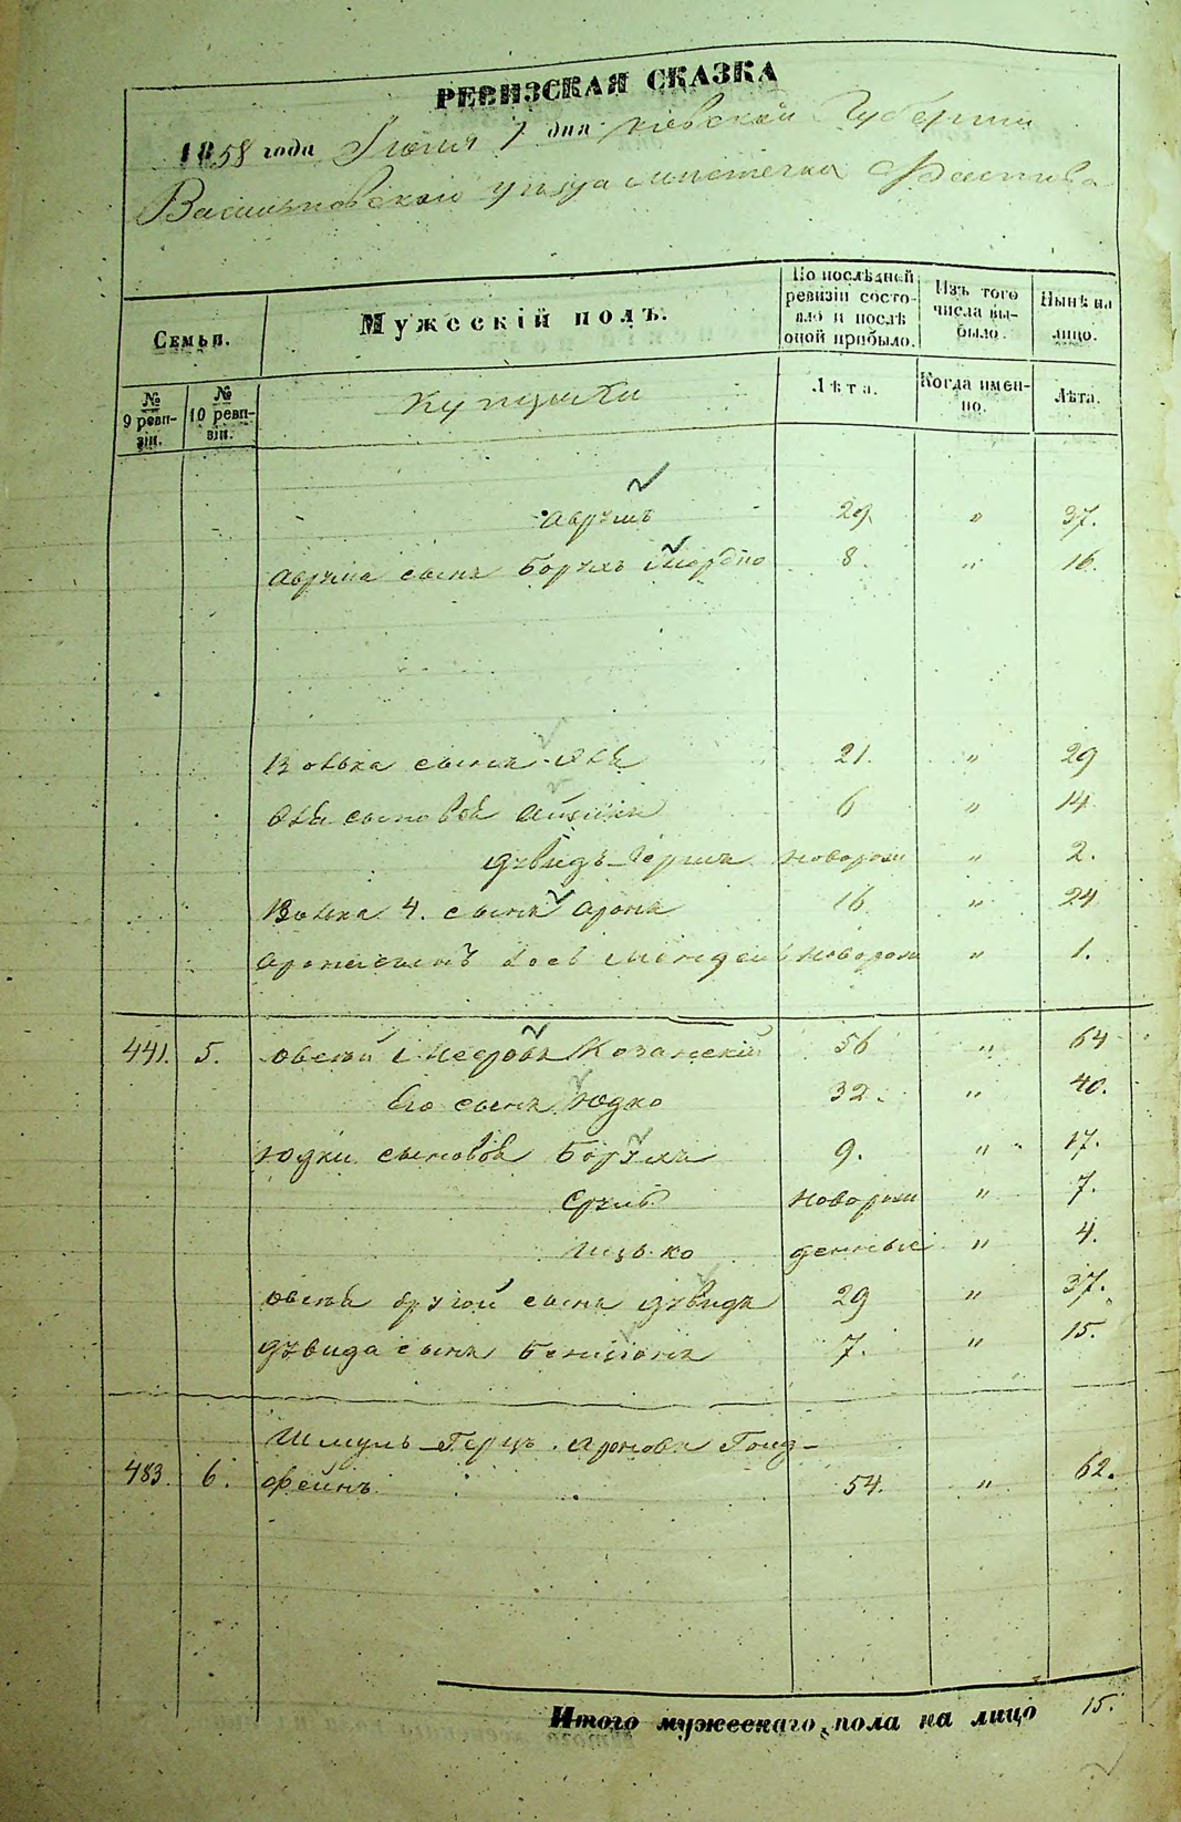 РЕВИЗСКАЯ СКАЗКА
1858 года Июня 7 дня Кіевской Губерніи
Васильковскаго уѣзда мѣстечка Фастова
Семьи.
Мужескій полъ.
По послѣдней ревизіи состояло и послѣ оной прибыло.
Изъ того числа выбыло.
Нынѣ на лицо.
№ 9 ревизіи.
№ 10 ревизіи.
Лѣта.
Когда именно.
Лѣта.
Аврумъ 29. " 37.
Аврума сынъ Борухъ Мордко 8. " 16.
Волька сынъ 21. " 29
сыновья 6 " 14
Дувидъ-Гершъ новорож " 2.
Волька 4. сынъ Аронъ 16. " 24
Арона сынъ Мендель новорож " 1.
441. 5. Овсѣй Казанскій 56 " 64
Его сынъ Юдко 32. " 40.
Юдки сыновья Борухъ 9. " 17.
Сруль новорож " 7.
Ицько денные " 4.
Овсѣя другой сынъ Дувидъ 29 " 37.
Дувида сынъ Бенціонъ 7. " 15.
Шмуль-Герцъ Ароновъ Голд-
483. 6. фейнъ 54. " 62.
Итого мужескаго пола на лицо 15.